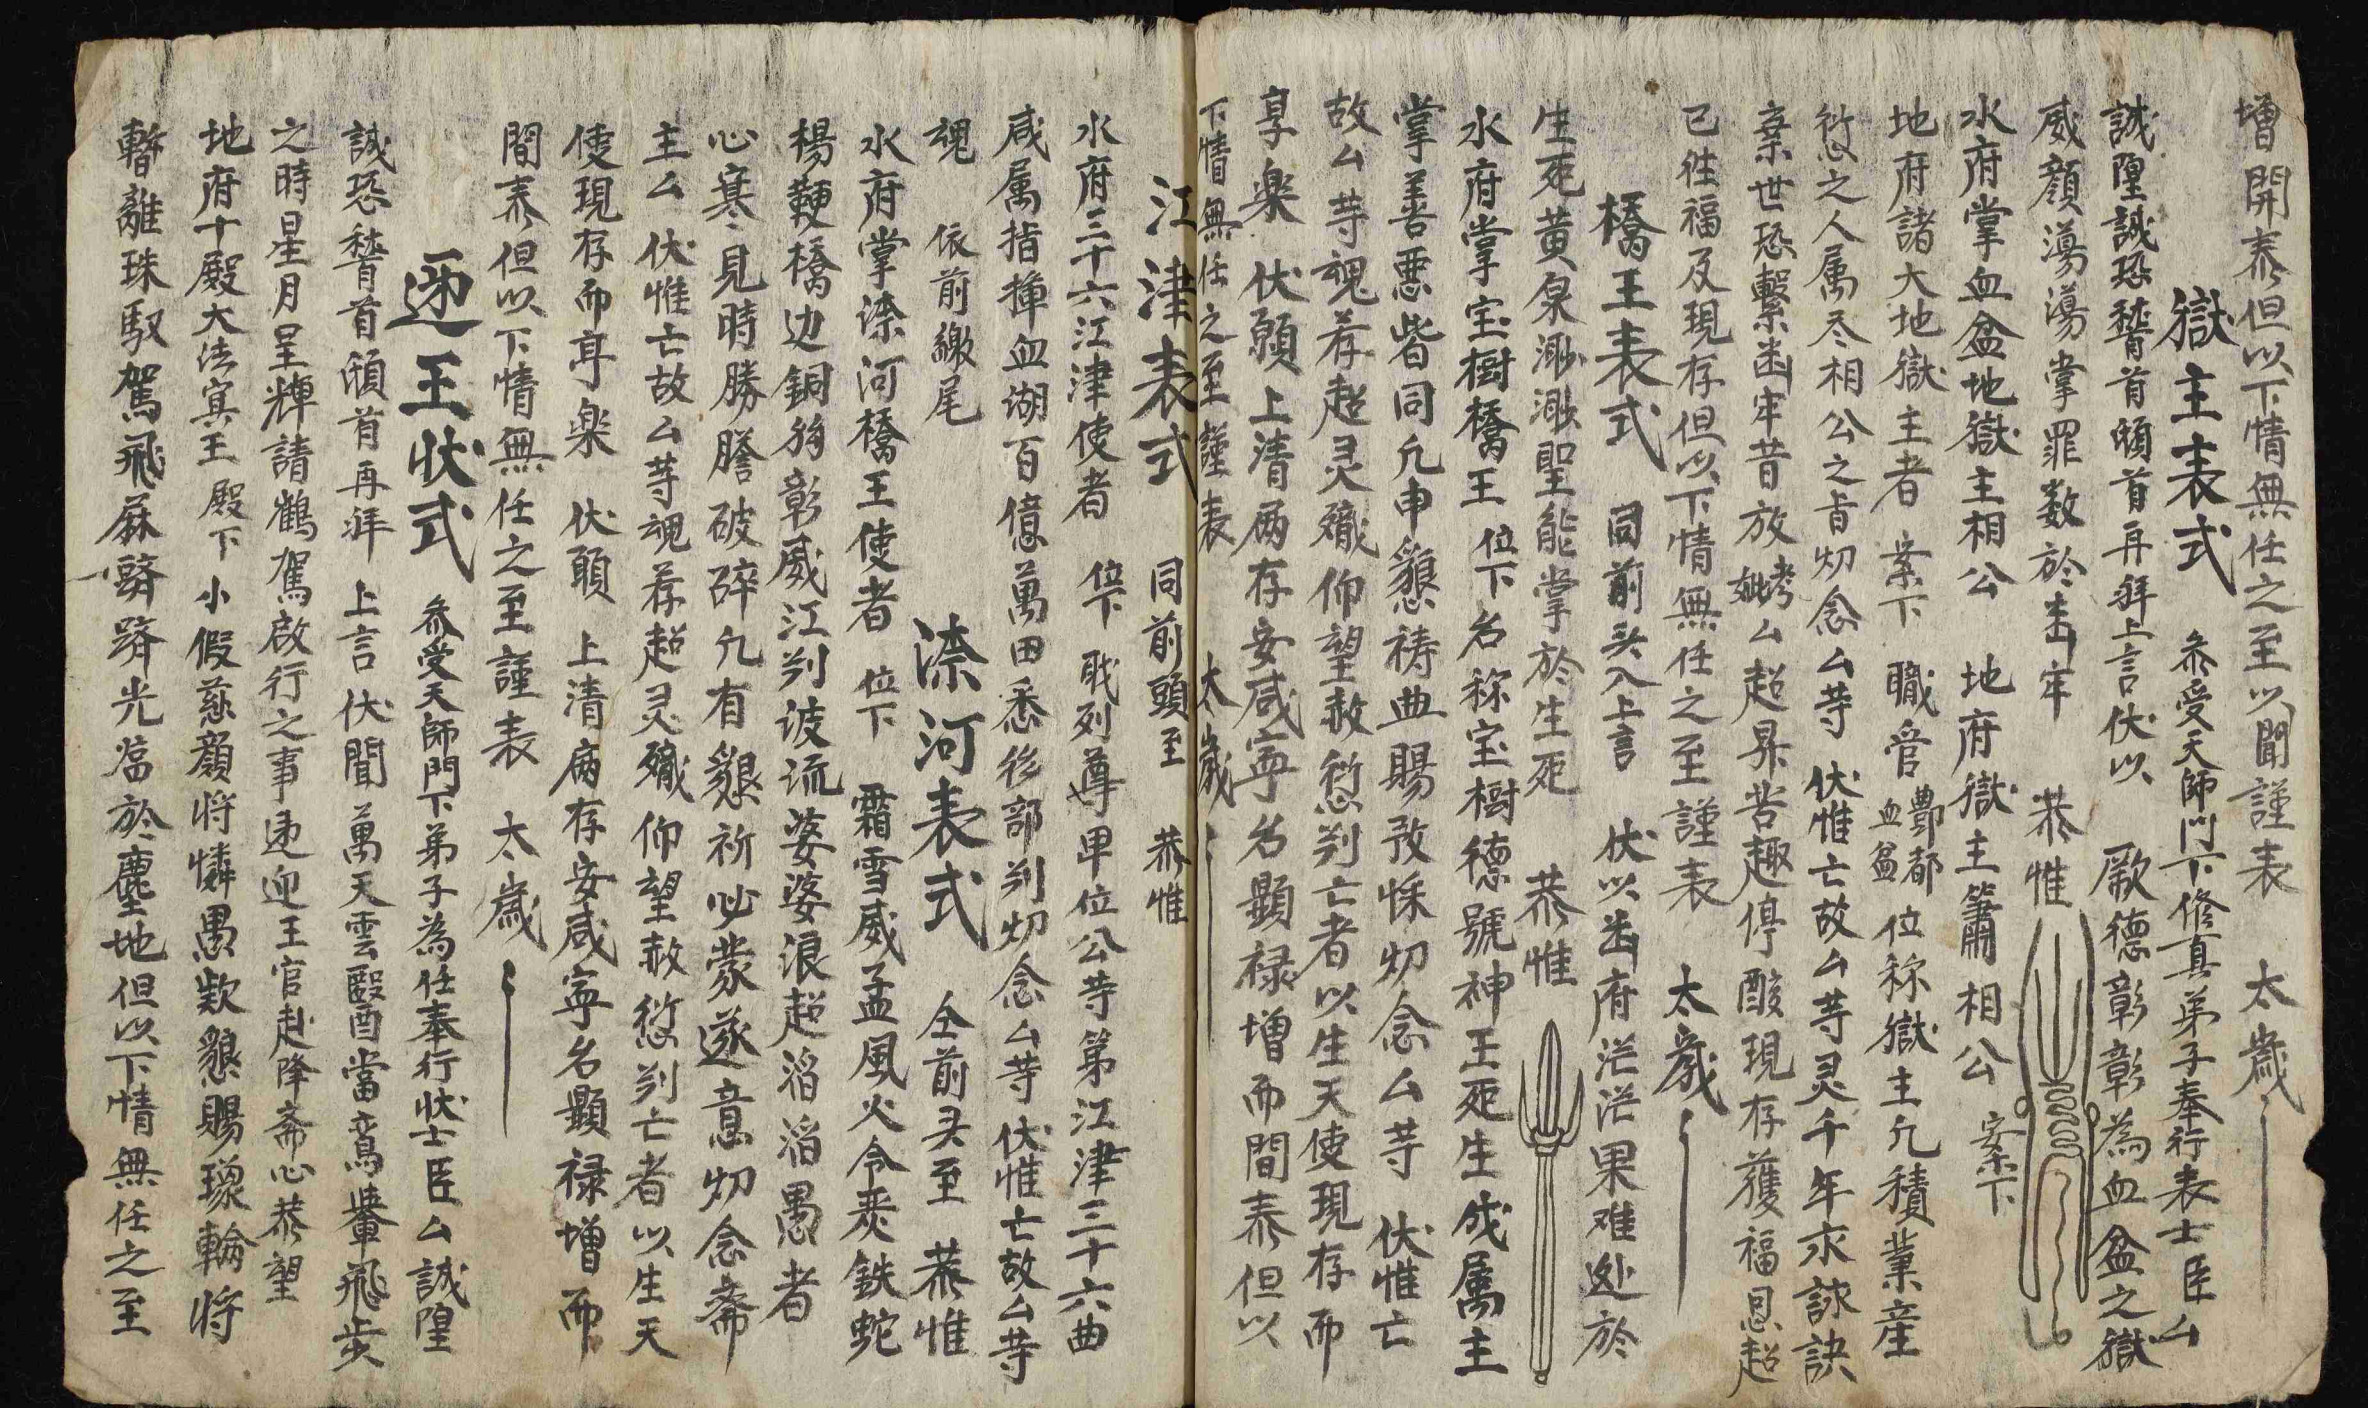 增開泰但以下情無任之至以聞謹表　太歲
獄主表式　叅受天師門下修真弟子奉行表士臣厶
誠隍誠恐𥡴首頓首再拜上言伏以　厥德彰彰為血盆之獄
威顏蕩蕩掌罪数於幽牢　恭惟
水府掌血盆地獄主相公　地府獄主簫相公　案下
地府諸大地獄主者　案下　職官酆都血盆位称獄主凢積業產
愆之人属尽相公之旨切念厶䓁　伏惟亡故厶䓁灵千年求訣
棄世恐繫幽牢昔放　厶超昇苦趣停酸現存獲福恩超
已徃福及現存但以下情無任之至謹表　太歲
橋王表式　同前头入上言　伏以幽府茫茫果难迯於
生死黄泉渺渺聖能掌於生死　恭惟
水府掌宝樹橋王　位下名称宝樹德號神王死生成属主
掌善悪皆同凢申懇祷曲賜　切念厶䓁　伏惟亡
故厶䓁魂荐超灵儀仰望赦愆判亡者以生天使現存而
享楽　伏願　上清两存安咸寧名顯禄增而間泰但以
下情無任之至謹表　太歲
江津表式　同前頭至　恭惟
水府三十六江津使者　位下　戝列尊卑位公䓁第江津三十六曲
咸属指揮血湖百億萬田悉後部判切念厶䓁伏惟亡故厶䓁
魂　依前繳尾
渿河表式　仝前头至　恭惟
水府掌渿河橋王使者　位下　霜雪威孟風火令炎鉄蛇
楊鞕橋边銅狗彰威江判波流婆婆浪超滔滔愚者
心寒見時勝膽破碎凢有懇祈必蒙遂意切念斋
主厶　伏惟亡故厶䓁魂荐超灵儀仰望赦愆判亡者以生天
使現存而亨楽　伏頭　上清病存安咸寧名顯禄增而
間泰但以下情無任之至謹表　太歲
迎王状式　叅受天師門下弟子為任奉行状士臣厶誠隍
誠恐𥡴首頓首再拜　上言伏聞萬天雲翳酉當鸞輦飛步
之時星月呈輝請鶴駕啟行之事迎王官赴降斋心恭望
地府十殿大法冥王　殿下　小假慈顏将憐愚欵懇賜瓊輪将
暫離珠馭駕飛　臍躋光㳸於塵地但以下情無任之至